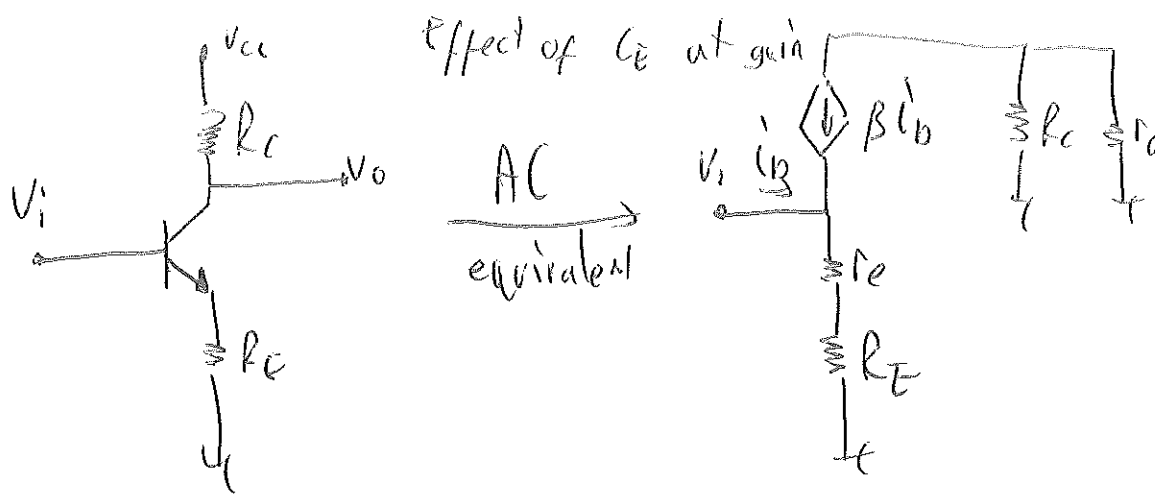 Effect of CE at gain
Vcc
RC
Vi
Vo
RE
AC
equivalent
Vi iB
βib
RC
ro
re
RE